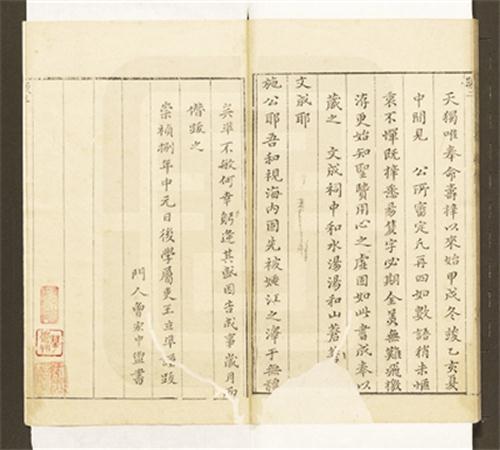 天獨唯奉命壽梓以來始甲戌冬竣乙亥夏
中間見 公所審定凡再四如數語稍未愜
衷不憚既梓悉易隻字必期全美無難飛檄
海更始知聖賢用心之虛固如此書成奉以
藏之 文成祠中和水湯湯和山蒼蒼
文成耶
施公耶吾和視海內固先被姚江之澤于無
吳準不敏何幸躬逢其盛因告成事歲月而
僭跋之
崇禎捌年中元日後學屬吏王立準謹跋
門人曾
中盥書